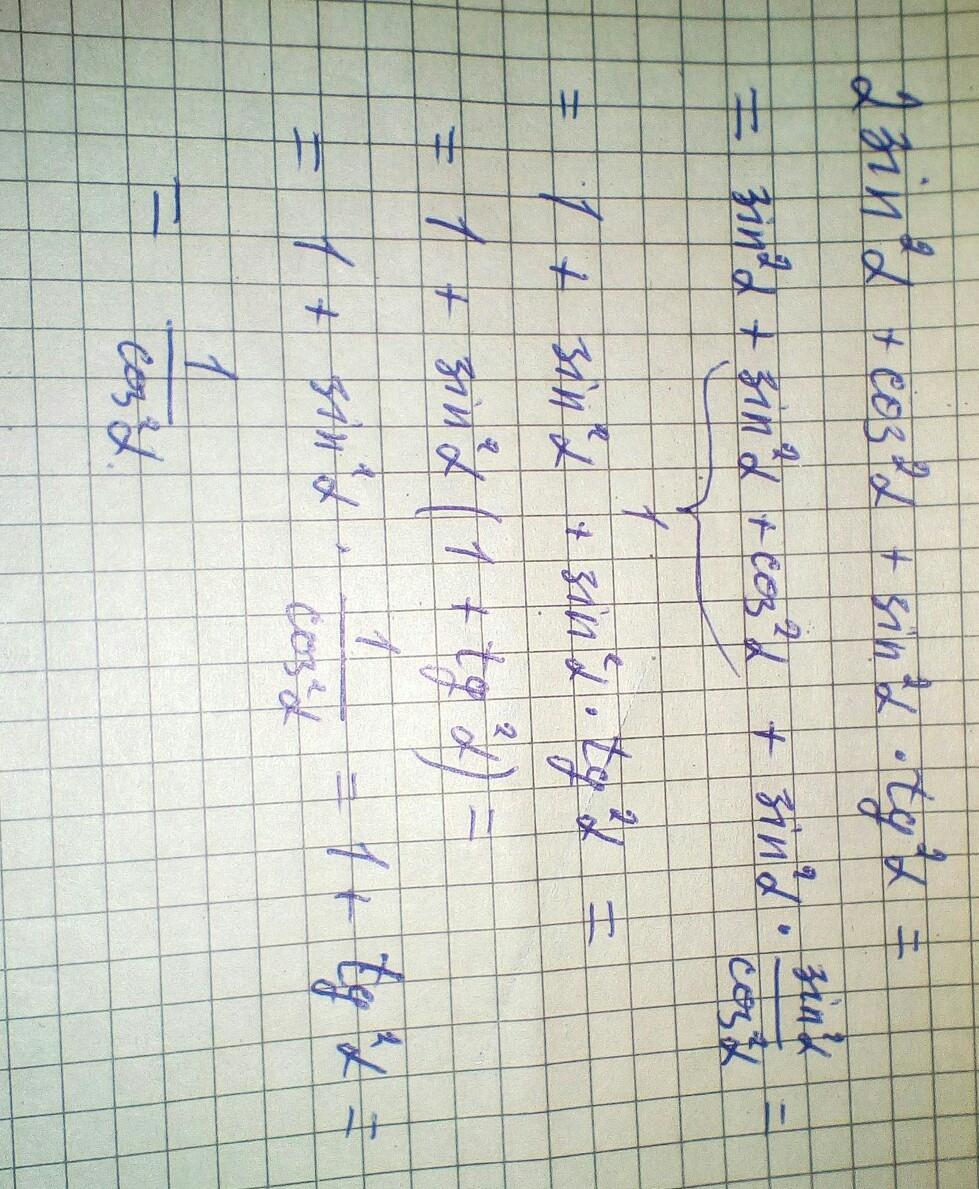 2sin²α + cos²α + sin²α · tg²α =
= sin²α + sin²α + cos²α + sin²α · sin²α/cos²α =
1
= 1 + sin²α + sin²α · tg²α =
= 1 + sin²α (1 + tg²α) =
= 1 + sin²α · 1/cos²α = 1 + tg²α =
= 1/cos²α.